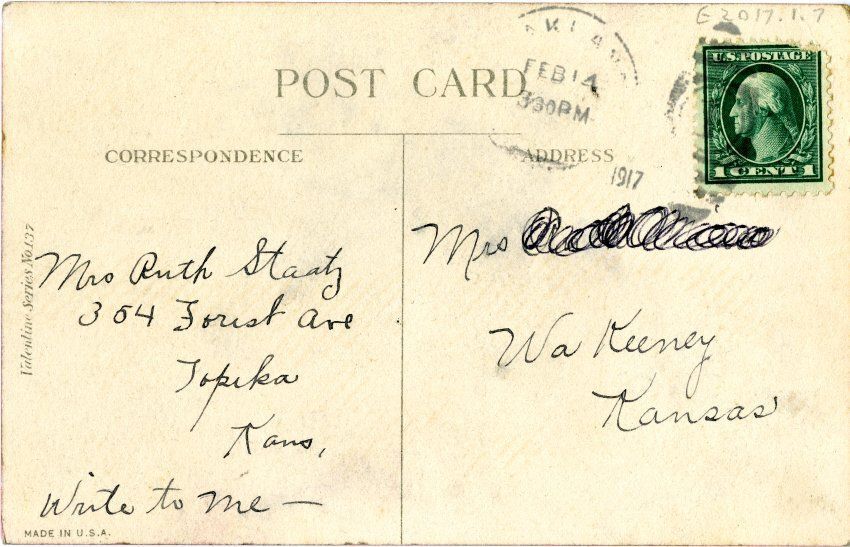 E 2017.1.7
FEB 14
3 30 PM
1917
U.S. POSTAGE
1 CENT 1
POST CARD
CORRESPONDENCE
ADDRESS
Valentine Series No. 137
Mrs Ruth Staatz
354 Forest Ave
Topeka
Kans,
Write to me —
Mrs
Wa Keeney
Kansas
MADE IN U.S.A.